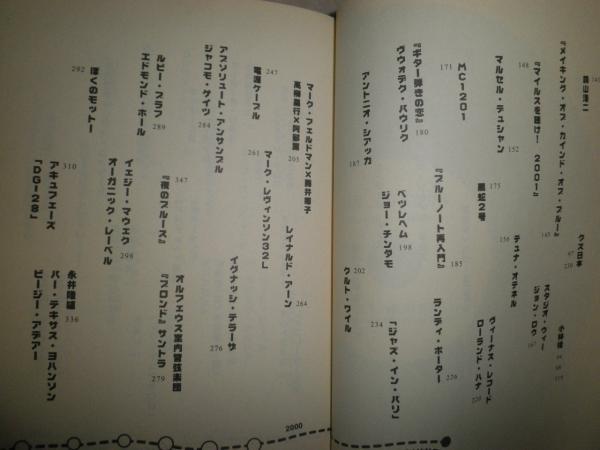 森山浩二
『メイキング・オブ・カインド・オブ・ブルー』
145
クズ日本
『マイルスを聴け! 2001』
148
スタジオ・ウィー
ジョン・ロウ
167
小林桂
マルセル・デュシャン
152
テュナ・オテネル
156
ヴィーナス・レコード
ローランド・ハナ
220
MC1201
171
黒蛇2号
175
『ギター弾きの恋』
180
『ブルーノート再入門』
185
ランディ・ポーター
226
ヴヴォデク・パウリク
ベツレヘム
ジョー・チンダモ
198
「ジャズ・イン・パリ」
234
アントニオ・シアッカ
187
クルト・ワイル
202
マーク・フェルドマン×
高柳昌行×阿部薫
205
レイナルド・アーン
264
電源ケーブル
247
マーク・レヴィンソン32L
261
イグナッシ・テラーザ
276
アブソリュート・アンサンブル
ジャコモ・ゲイツ
284
『夜のブルース』
347
オルフェウス室内管弦楽団
『ブロンド』サントラ
279
ルビー・ブラフ
289
エドモンド・ホール
イェジー・マウェク
オーガニック・レーベル
298
ぼくのモットー
292
アキュフェーズ
「DG-28」
310
永井隆雄
パー・テキサス・ヨハンソン
ビージー・アデアー
336
2000